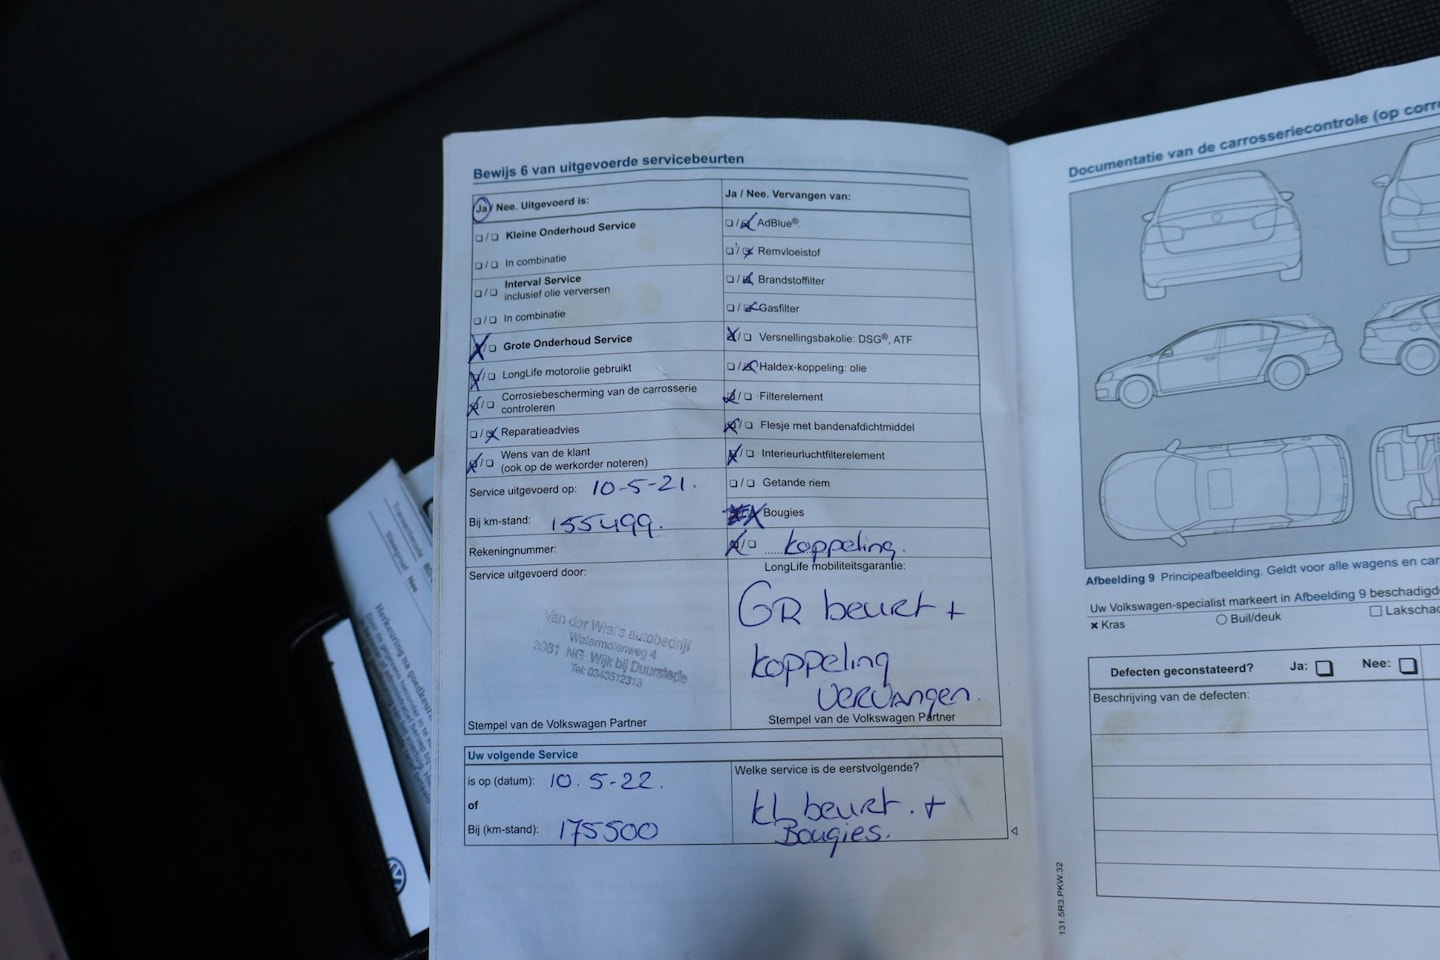 Bewijs 6 van uitgevoerde servicebeurten
Ja / Nee. Uitgevoerd is:
Kleine Onderhoud Service
In combinatie
Interval Service
inclusief olie verversen
In combinatie
Grote Onderhoud Service
LongLife motorolie gebruikt
Corrosiebescherming van de carrosserie
controleren
Reparatieadvies
Wens van de klant
(ook op de werkorder noteren)
Service uitgevoerd op: 10-5-21.
Bij km-stand: 155499.
Rekeningnummer:
Service uitgevoerd door:
Van der Wiel's autobedrijf
Watermolenweg 4
3961 NG Wijk bij Duurstede
Tel: 0343512313
Stempel van de Volkswagen Partner
Ja / Nee. Vervangen van:
AdBlue®.
Remvloeistof
Brandstoffilter
Gasfilter
Versnellingsbakolie: DSG®, ATF
Haldex-koppeling: olie
Filterelement
Flesje met bandenafdichtmiddel
Interieurluchtfilterelement
Getande riem
Bougies
koppeling.
LongLife mobiliteitsgarantie:
GR beurt +
koppeling
vervangen.
Stempel van de Volkswagen Partner
Uw volgende Service
is op (datum): 10.5-22.
of
Bij (km-stand): 175500
Welke service is de eerstvolgende?
kl beurt. +
Bougies.
Documentatie van de carrosseriecontrole (op
Afbeelding 9 Principeafbeelding. Geldt voor alle wagens en
Uw Volkswagen-specialist markeert in Afbeelding 9
Kras
Buil/deuk
Defecten geconstateerd? Ja: Nee:
Beschrijving van de defecten:
131.5R3.PKW.32